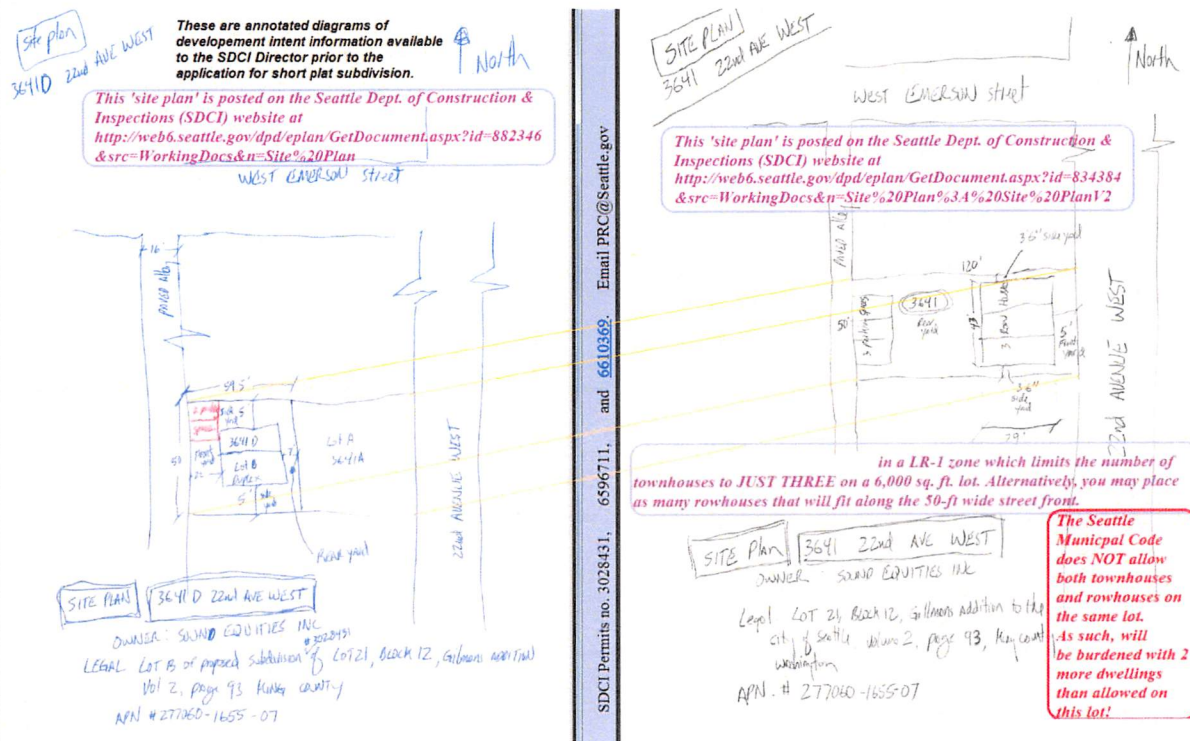 site plan
3641D 22nd AVE WEST
These are annotated diagrams of
developement intent information available
to the SDCI Director prior to the
application for short plat subdivision.
North
This 'site plan' is posted on the Seattle Dept. of Construction &
Inspections (SDCI) website at
http://web6.seattle.gov/dpd/eplan/GetDocument.aspx?id=882346
&src=WorkingDocs&n=Site%20Plan
WEST EMERSON street
16'
PAVED Alley
59.5'
50
side yard
5
3641 D
Lot B
Duplex
22
7
5'
side yard
Lot A
3641A
22nd AVENUE WEST
REAR yard
SITE PLAN
3641 D 22nd AVE WEST
OWNER: SOUND EQUITIES INC
#3028431
LEGAL LOT B of proposed subdivision of LOT 21, BLOCK 12, Gilmans ADDITION
Vol 2, page 93 KING COUNTY
APN # 277060-1655-07
SDCI Permits no. 3028431, 6596711, and 6610369. Email PRC@Seattle.gov
SITE PLAN
3641 22nd AVE WEST
North
WEST EMERSON street
This 'site plan' is posted on the Seattle Dept. of Construction &
Inspections (SDCI) website at
http://web6.seattle.gov/dpd/eplan/GetDocument.aspx?id=834384
&src=WorkingDocs&n=Site%20Plan%3A%20Site%20PlanV2
PAVED Alley
3'6" side yard
120'
50'
3641
Rear yard
43'
3 Row Houses
5'
Front yard
3'6"
side
yard
29'
22nd AVENUE WEST
in a LR-1 zone which limits the number of
townhouses to JUST THREE on a 6,000 sq. ft. lot. Alternatively, you may place
as many rowhouses that will fit along the 50-ft wide street front.
SITE PLAN
3641 22nd AVE WEST
OWNER: SOUND EQUITIES INC
Legal LOT 21, Block 12, Gillmans addition to the
city of Seattle Volume 2, page 93, King county
Washington
APN. # 277060-1655-07
The Seattle
Municpal Code
does NOT allow
both townhouses
and rowhouses on
the same lot.
As such, will
be burdened with 2
more dwellings
than allowed on
this lot!